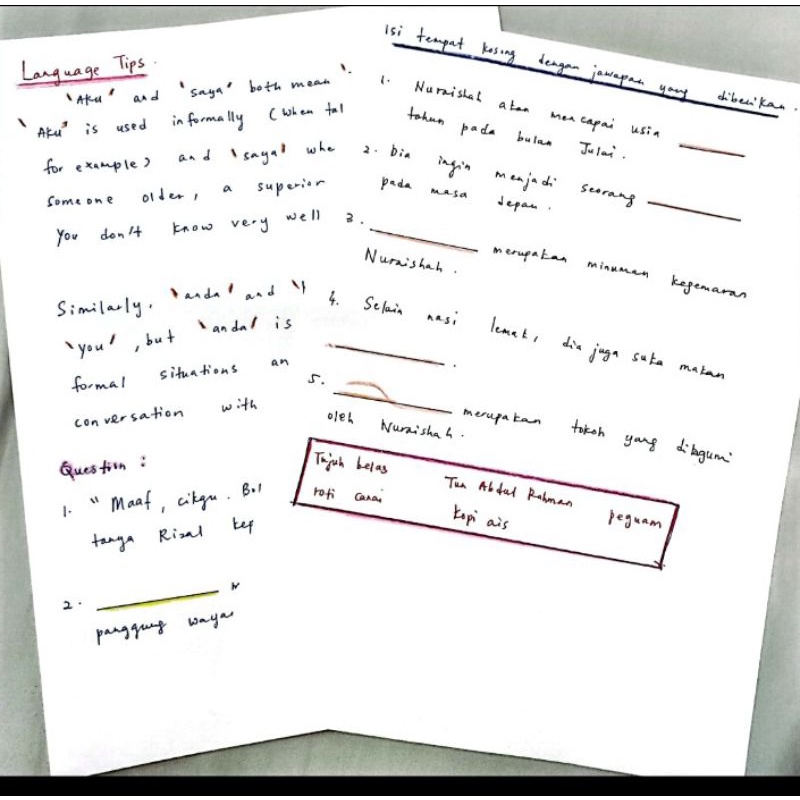 Language Tips.
'Aku' and 'saya' both mean '
'Aku' is used informally (when tal
for example) and 'saya' whe
someone older, a superior
you don't know very well
Similarly, 'anda' and '
'you', but 'anda' is
formal situations an
conversation with
Question :
1. " Maaf, cikgu. Bol
tanya Rizal kep
2.
panggung waya
Isi tempat kosong dengan jawapan yang diberikan.
1. Nuraishah akan mencapai usia
tahun pada bulan Julai.
2. Dia ingin menjadi seorang
pada masa depan.
3. merupakan minuman kegemaran
Nuraishah.
4. Selain nasi lemak, dia juga suka makan
.
5. merupakan tokoh yang dikagumi
oleh Nuraishah.
Tujuh belas Tun Abdul Rahman peguam
roti canai kopi ais